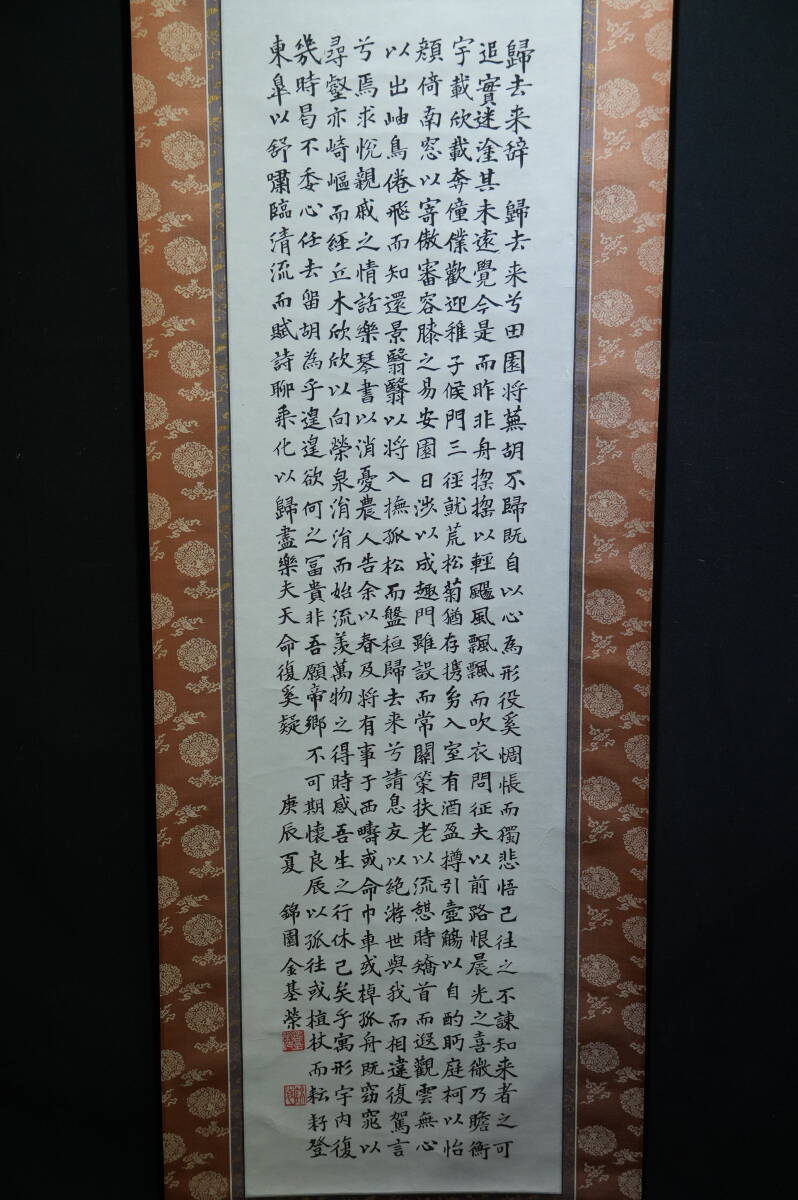 歸去来辞 歸去来兮田園将蕪胡不歸既自以心為形役奚惆悵而獨悲悟己往之不諫知来者之可
追實迷塗其未遠覺今是而昨非舟揺揺以輕颺風飄飄而吹衣問征夫以前路恨晨光之喜微乃瞻衡
宇載欣載奔僮僕歡迎稚子候門三径就荒松菊猶存携幼入室有酒盈樽引壺觴以自酌眄庭柯以怡
顔倚南窓以寄傲審容膝之易安園日渉以成趣門雖設而常關策扶老以流憩時矯首而遐觀雲無心
以出岫鳥倦飛而知還景翳翳以将入撫孤松而盤桓歸去来兮請息友以絶游世與我而相違復駕言
兮焉求悅親戚之情話樂琴書以消憂農人告余以春及将有事于西疇或命巾車或棹孤舟既窈窕以
尋壑亦崎嶇而經丘木欣欣以向榮泉涓涓而始流羨萬物之得時感吾生之行休已矣乎寓形宇内復
幾時曷不委心任去留胡為乎遑遑欲何之冨貴非吾願帝鄉不可期懷良辰以孤往或植杖而耘耔登
東皐以舒嘯臨清流而賦詩聊乗化以歸盡樂夫天命復奚疑 庚辰夏 錦園金基榮